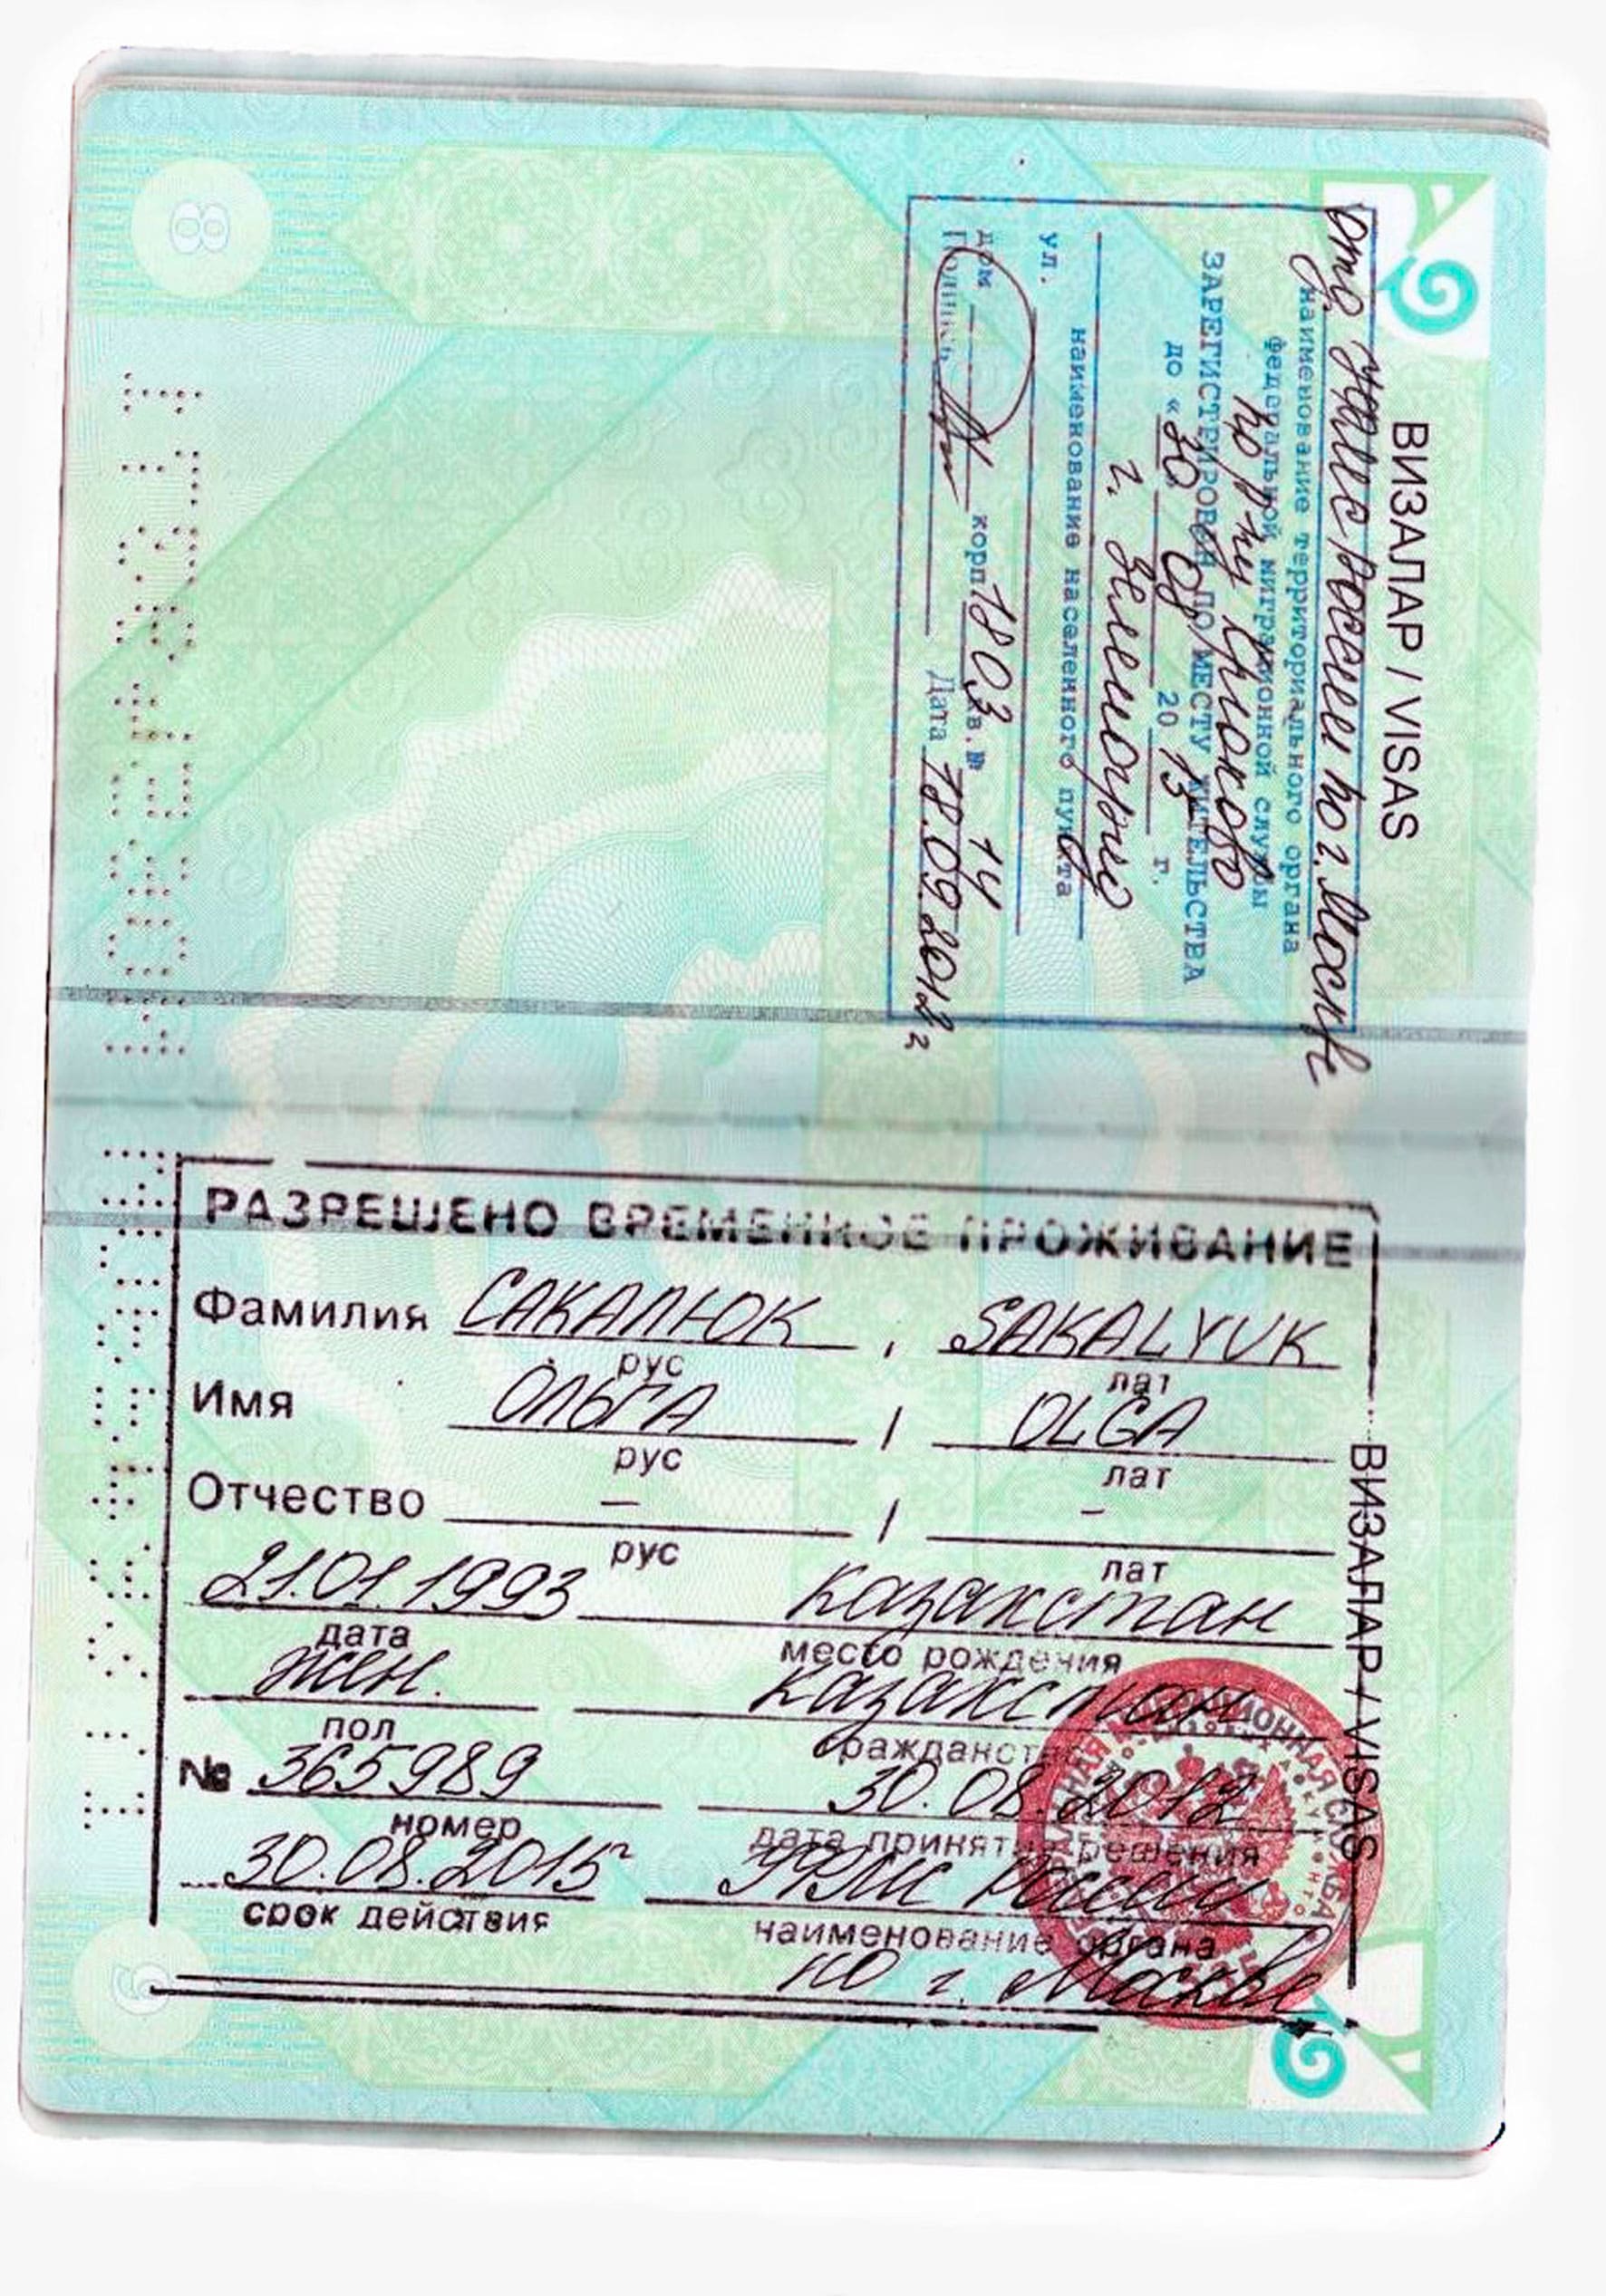 8
ВИЗАЛАР / VISAS
отд. УФМС России по г. Москве
наименование территориального органа
федеральной миграционной службы
по р-ну Крюково
ЗАРЕГИСТРИРОВАН ПО МЕСТУ ЖИТЕЛЬСТВА
до « 30 08 20 15 г.
г. Зеленоград
наименование населенного пункта
ул.
дом корп 1803 кв. № 14
Подпись Дата 18.09.2012 г
РАЗРЕШЕНО ВРЕМЕННОЕ ПРОЖИВАНИЕ
Фамилия САКАЛЮК , SAKALYUK
рус лат
Имя ОЛЬГА / OLGA
рус лат
Отчество – / –
рус лат
21.01.1993 Казахстан
дата место рождения
жен. Казахстан
пол гражданство
№ 365989 30.08.2012
номер дата принятия решения
30.08.2015 УФМС России
срок действия наименование органа
по г. Москве
ВИЗАЛАР / VISAS
9